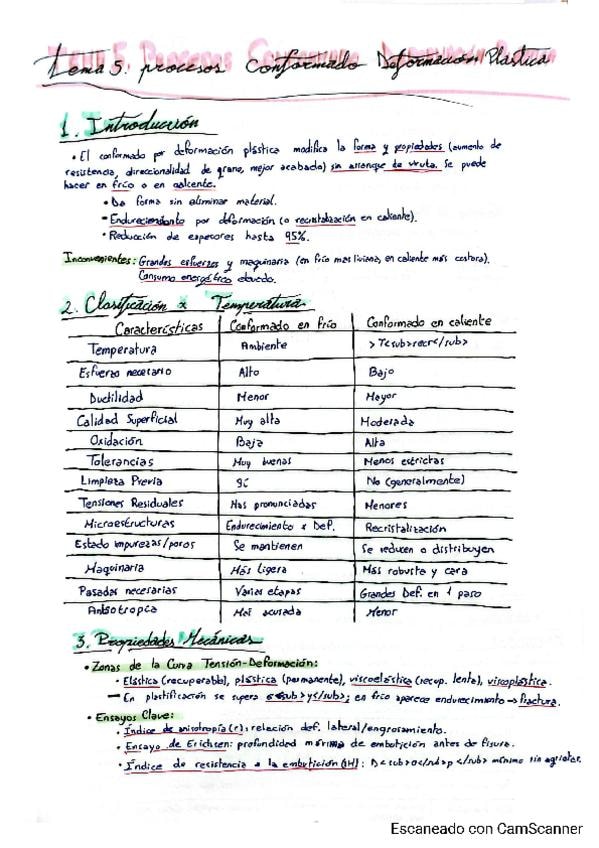 Tema 5. Procesos Conformado Deformación Plástica
1. Introducción
• El conformado por deformación plástica modifica la forma y propiedades (aumento de
resistencia, direccionalidad de grano, mejor acabado) sin arranque de viruta. Se puede
hacer en frío o en caliente.
• Da forma sin eliminar material.
• Endureciendolo por deformación (o recristalización en caliente).
• Reducción de espesores hasta 95%.
Inconvenientes: Grandes esfuerzos y maquinaria (en frío mas liviana, en caliente más costosa).
Consumo energético elevado.
2. Clasificación x Temperatura
Características Conformado en frío Conformado en caliente
Temperatura Ambiente > T<sub>recr</sub>
Esfuerzo necesario Alto Bajo
Ductilidad Menor Mayor
Calidad Superficial Muy alta Moderada
Oxidación Baja Alta
Tolerancias Muy buenas Menos estrictas
Limpieza Previa Sí No (generalmente)
Tensiones Residuales Mas pronunciadas Menores
Microestructuras Endurecimiento x Def. Recristalización
Estado impurezas/poros Se mantienen Se reducen o distribuyen
Maquinaria Más ligera Más robusta y cara
Pasadas necesarias Varias etapas Grandes Def. en 1 paso
Anisotropía Mas acusada Menor
3. Propiedades Mecánicas
• Zonas de la Curva Tensión-Deformación:
• Elástica (recuperable), plástica (permanente), viscoelástica (recup. lenta), viscoplástica.
— En plastificación se supera σ<sub>y</sub>; en frío aparece endurecimiento → fractura.
• Ensayos Clave:
• Índice de anisotropía (r): relación def. lateral/engrosamiento.
• Ensayo de Erichsen: profundidad máxima de embutición antes de fisura.
• Índice de resistencia a la embutición (IH): D<sub>0</sub> mínimo sin agrietar.
Escaneado con CamScanner